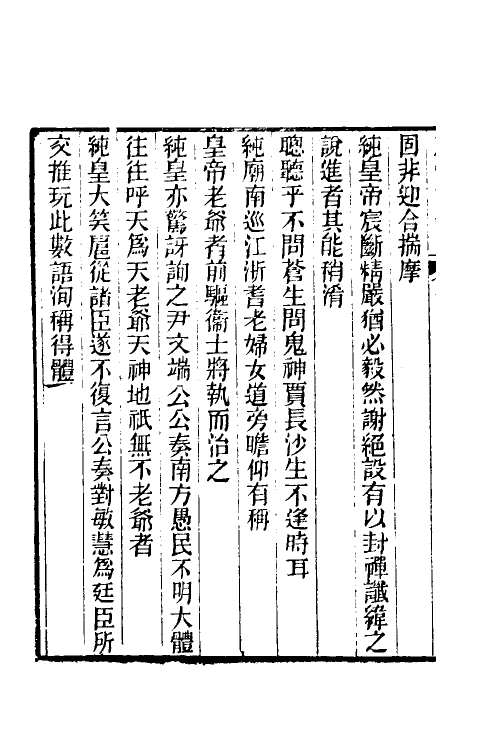 固非迎合揣摩
純皇帝宸斷精嚴猶必毅然謝絕設有以封禪讖緯之
說進者其能稍淆
聰聽乎不問蒼生問鬼神賈長沙生不逢時耳
純廟南巡江浙耆老婦女道旁瞻仰有稱
皇帝老爺者前驅衞士將執而治之
純皇亦驚訝詢之尹文端公公奏南方愚民不明大體
往往呼天爲天老爺天神地祇無不老爺者
純皇大笑扈從諸臣遂不復言公奏對敏慧爲廷臣所
交推玩此數語洵稱得體